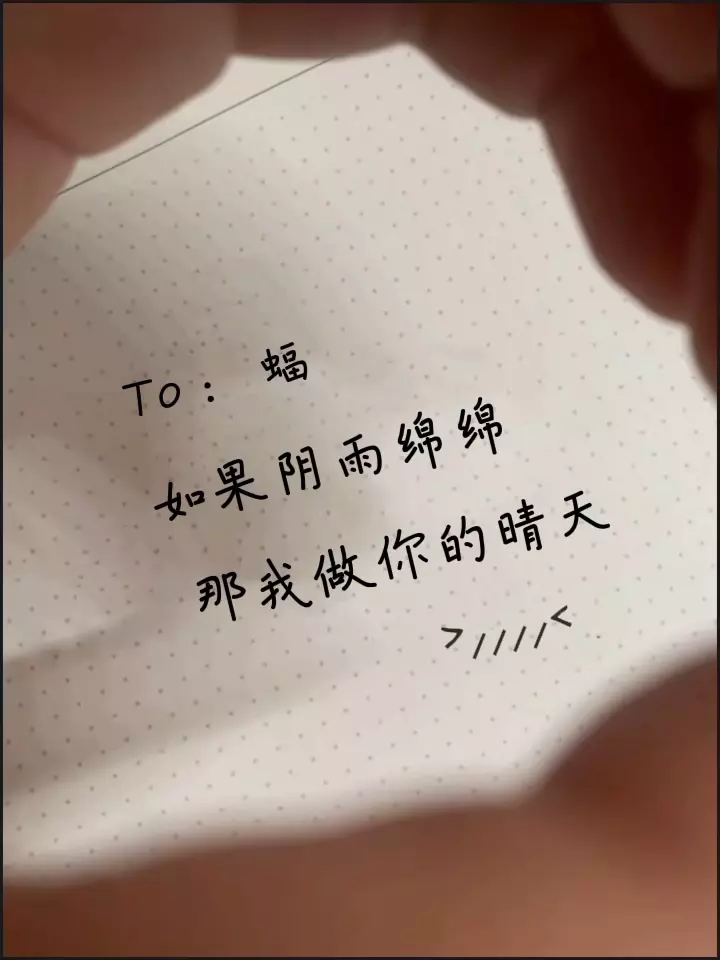 TO： 蝠
如果阴雨绵绵
那我做你的晴天
>////<